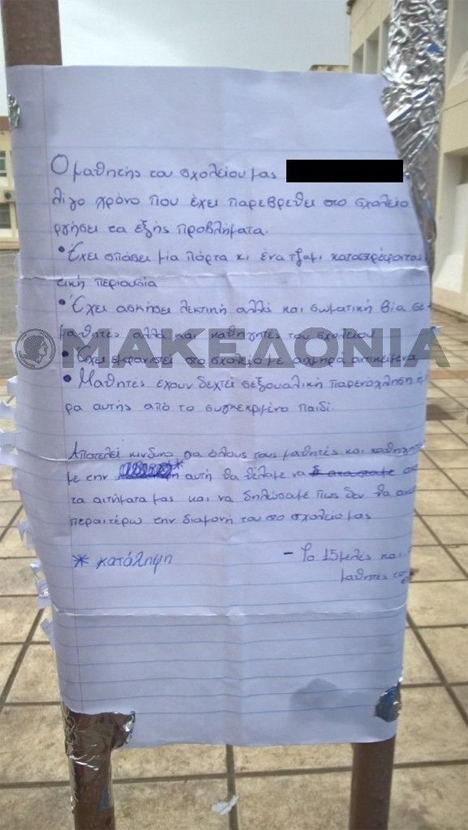 Ο μαθητής του σχολείου μας
λίγο χρόνο που έχει παρεβρεθεί στο σχολείο
ργήσει τα εξής προβλήματα.
• Έχει σπάσει μία πόρτα κι ένα τζάμι καταστρέφοντα
τική περιουσία
• Έχει ασκήσει λεκτική αλλά και σωματική βία σε
μαθητές αλλά και καθηγητές του σχολείου
• Έχει εμφανιστεί στο σχολείο με αιχμηρά αντικείμενα
• Μαθητές έχουν δεχτεί σεξουαλική παρενόχληση
ρα αυτής από το συγκεκριμένο παιδί.
Αποτελεί κίνδυνο για όλους τους μαθητές και καθηγητ
με την * αυτή θα θέλαμε να
τα αιτήματα μας και να δηλώσαμε πως δεν θα
περαιτέρω την διαμονή του στο σχολείο μας
* κατάληψη
- Το 15μελές και
μαθητές το
ΜΑΚΕΔΟΝΙΑ